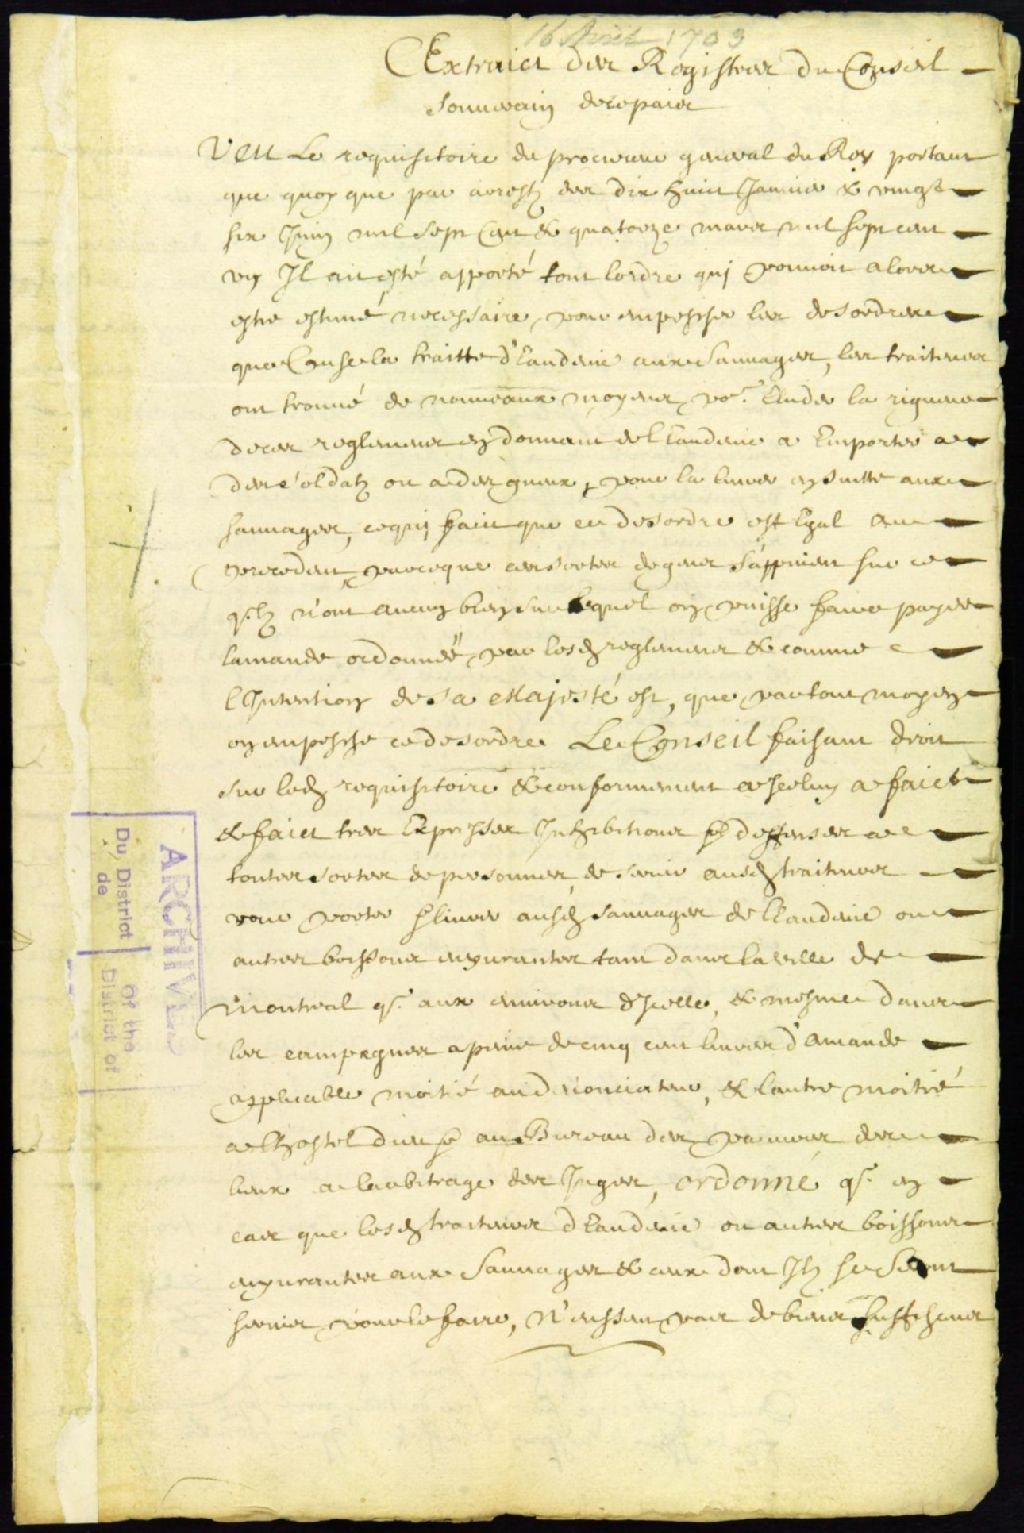 16 Avril 1703
Extraict des Registres du Conseil
souverain de ce pais
Veu Le requisitoire du procureur general du Roy portant
que quoy que par arrests des dix huict Janvier & vingt
six Juin mil sept Cent & quatorze mars mil sept cent
un Il ait esté apporté tout lordre qui pouvoit alors
estre estimé necessaire pour empescher les desordres
que Cause la traitte d'Eaudevie aux Sauvages, les traiteurs
ont trouvé de nouveaux moyens po.r Eluder la rigueur
de ces reglemens en donnant de l'Eaudevie a Emporter a
des soldatz ou a des gueux, pour la livrer ensuitte aux
sauvages, ce qui fait que ce desordre est Egal au
precedent, parceque ces sortes de gens s'appuient sur ce
qlz n'ont aucun bien sur lequel on puisse faire payer
lamande ordonnée par lesd reglemens & comme
l'Intention de sa Majesté est, que par tout moyen
on empesche ce desordre Le Conseil faisant droit
sur led requisitoire & conformement a Iceluy a faict
& faict tres Expresses Inhibitions & deffenses a
toutes sortes de personnes de servir ausd traiteurs
pour porter & livrer ausd sauvages de l'Eaudevie ou
autres boissons enyvrantes tant dans la ville de
Montreal q.e aux environs d'Icelle, & mesme dans
les campagnes a peine de cinq cent livres d'Amande
applicable moitié au denonciateur, & lautre moitié
a l'hostel dieu & au Bureau des pauvres des
lieux a larbitrage des Juges, ordonne q.e en
cas que lesd traiteurs d'Eaudevie ou autres boissons
enyvrantes aux Sauvages & ceux dont Ilz se seront
servis pour le faire, n'eussent pas de biens suffisans
ARCHIVES
Du District
de
Of the
District of